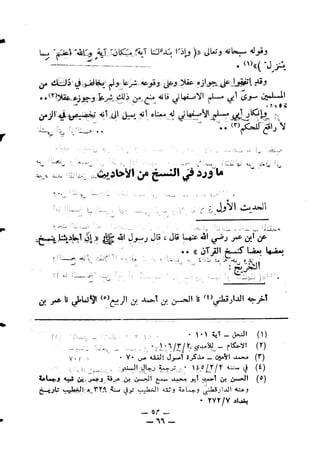 وقوله سبحانه وتعالى «(وإذا بدلنا آية مكان آية والله أعلم بما
ينزل)»(١) .
وقد اتفقوا على جوازه عقلا وعلى وقوعه شرعا ولم يخالف في ذلك من
المسلمين سوى أبي مسلم الاصفهاني فانه منع من ذلك شرعا وجوزه عقلا(٢) ..
وإنكار أبي مسلم الأصفهاني له معناه أنه يميل الى أنه تخصيص في الزمن
لا رافع للحكم(٣) ..
ما ورد في النسخ من الأحاديث
الحديث الأول :
عن ابن عمر رضي الله عنهما قال ، قال رسول الله ﷺ « إن أحاديثنا ينسخ
بعضها بعضا كنسخ القرآن » ..
التخريج :
أخرجه الدارقطني(٤) نا الحسن بن أحمد بن الربيع(٥) الأنماطي نا عمر بن
(١) النحل – آية ١٠١ .
(٢) الاحكام – للآمدي ١٠٦/٣/٢ .
(٣) محمد الأمين – مذكرة أصول الفقه ص ٧٠ .
(٤) في سننه ١٤٥/٢/٢ ترجمة رجال السند :
(٥) الحسن بن أحمد أبو محمد سمع الحسن بن عرفة وعمر بن شبه وجماعة
وعنه الدارقطني وجماعة وثقه الخطيب توفي سنة ٣٢٩ هـ الخطيب تاريخ
بغداد ٢٧٢/٧
– ٦٦ –